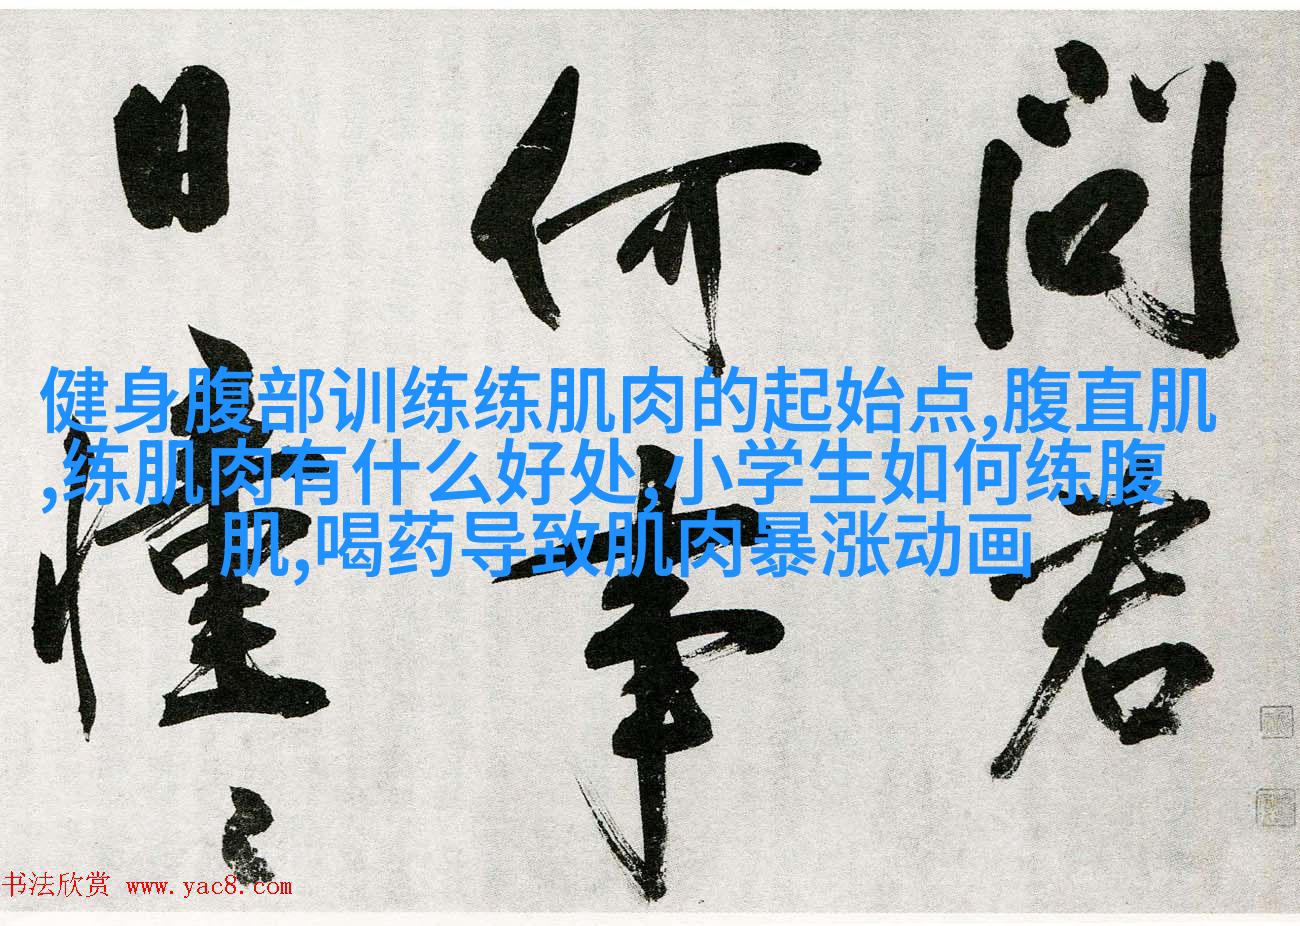 问君
何事
日憧々
健身腹部训练练肌肉的起始点,腹直肌
,练肌肉有什么好处,小学生如何练腹
肌,喝药导致肌肉暴涨动画
书法欣赏 www.yac8.com